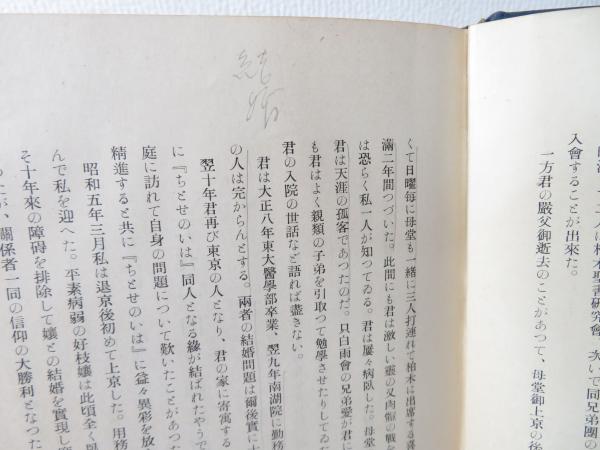 結婚
一二人は柏木聖書研究會、次いで同兄弟團の
入會することが出來た。
一方君の嚴父御逝去のことがあつて、母堂御上京の後
くて日曜毎に母堂も一緒に三人打連れて柏木に出席する喜
滿二年間つづいた。此間にも君は激しい靈の又肉軀の戰を
は恐らく私一人が知つてゐる。君は屢々病臥した。母堂
君は天涯の孤客であつたのだ。只白雨會の兄弟愛が君に
も君はよく親類の子弟を引取つて勉學させたりしてゐた
君の入院の世話など語れば盡きない。
君は大正八年東大醫學部卒業、翌九年南湖院に勤務
の人は完からんとする。兩者の結婚問題は爾後實に十
翌十年君再び東京の人となり、君の家に寄寓する
に『ちとせのいは』同人となる緣が結ばれたやうで
庭に訪れて自身の問題について歎いたことがあつた
精進すると共に『ちとせのいは』に益々異彩を放
昭和五年三月私は退京後初めて上京した。用務
んで私を迎へた。平素病弱の好枝孃は此頃全く
そ十年來の障碍を排除して孃との結婚を實現し
つたが、關係者一同の信仰の大勝利となつた